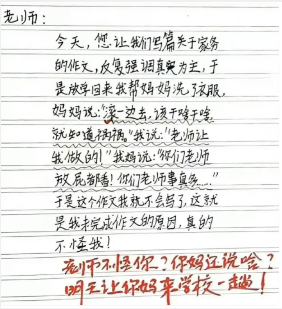 老师:
今天,您让我们写篇关于家务
的作文,反复强调真实为主,于
是放学回来我帮妈妈洗了衣服,
妈妈说:"滚一边去,该干啥干啥
就知道祸祸"我说:"老师让
我做的!"我妈说:"你们老师
放屁都香!你们老师事真多……"
于是这个作文我就不会写了,这就
是我未完成作文的原因,真的
不怪我!
老师不怪你?你妈还说啥?
明天让你妈来学校一趟!